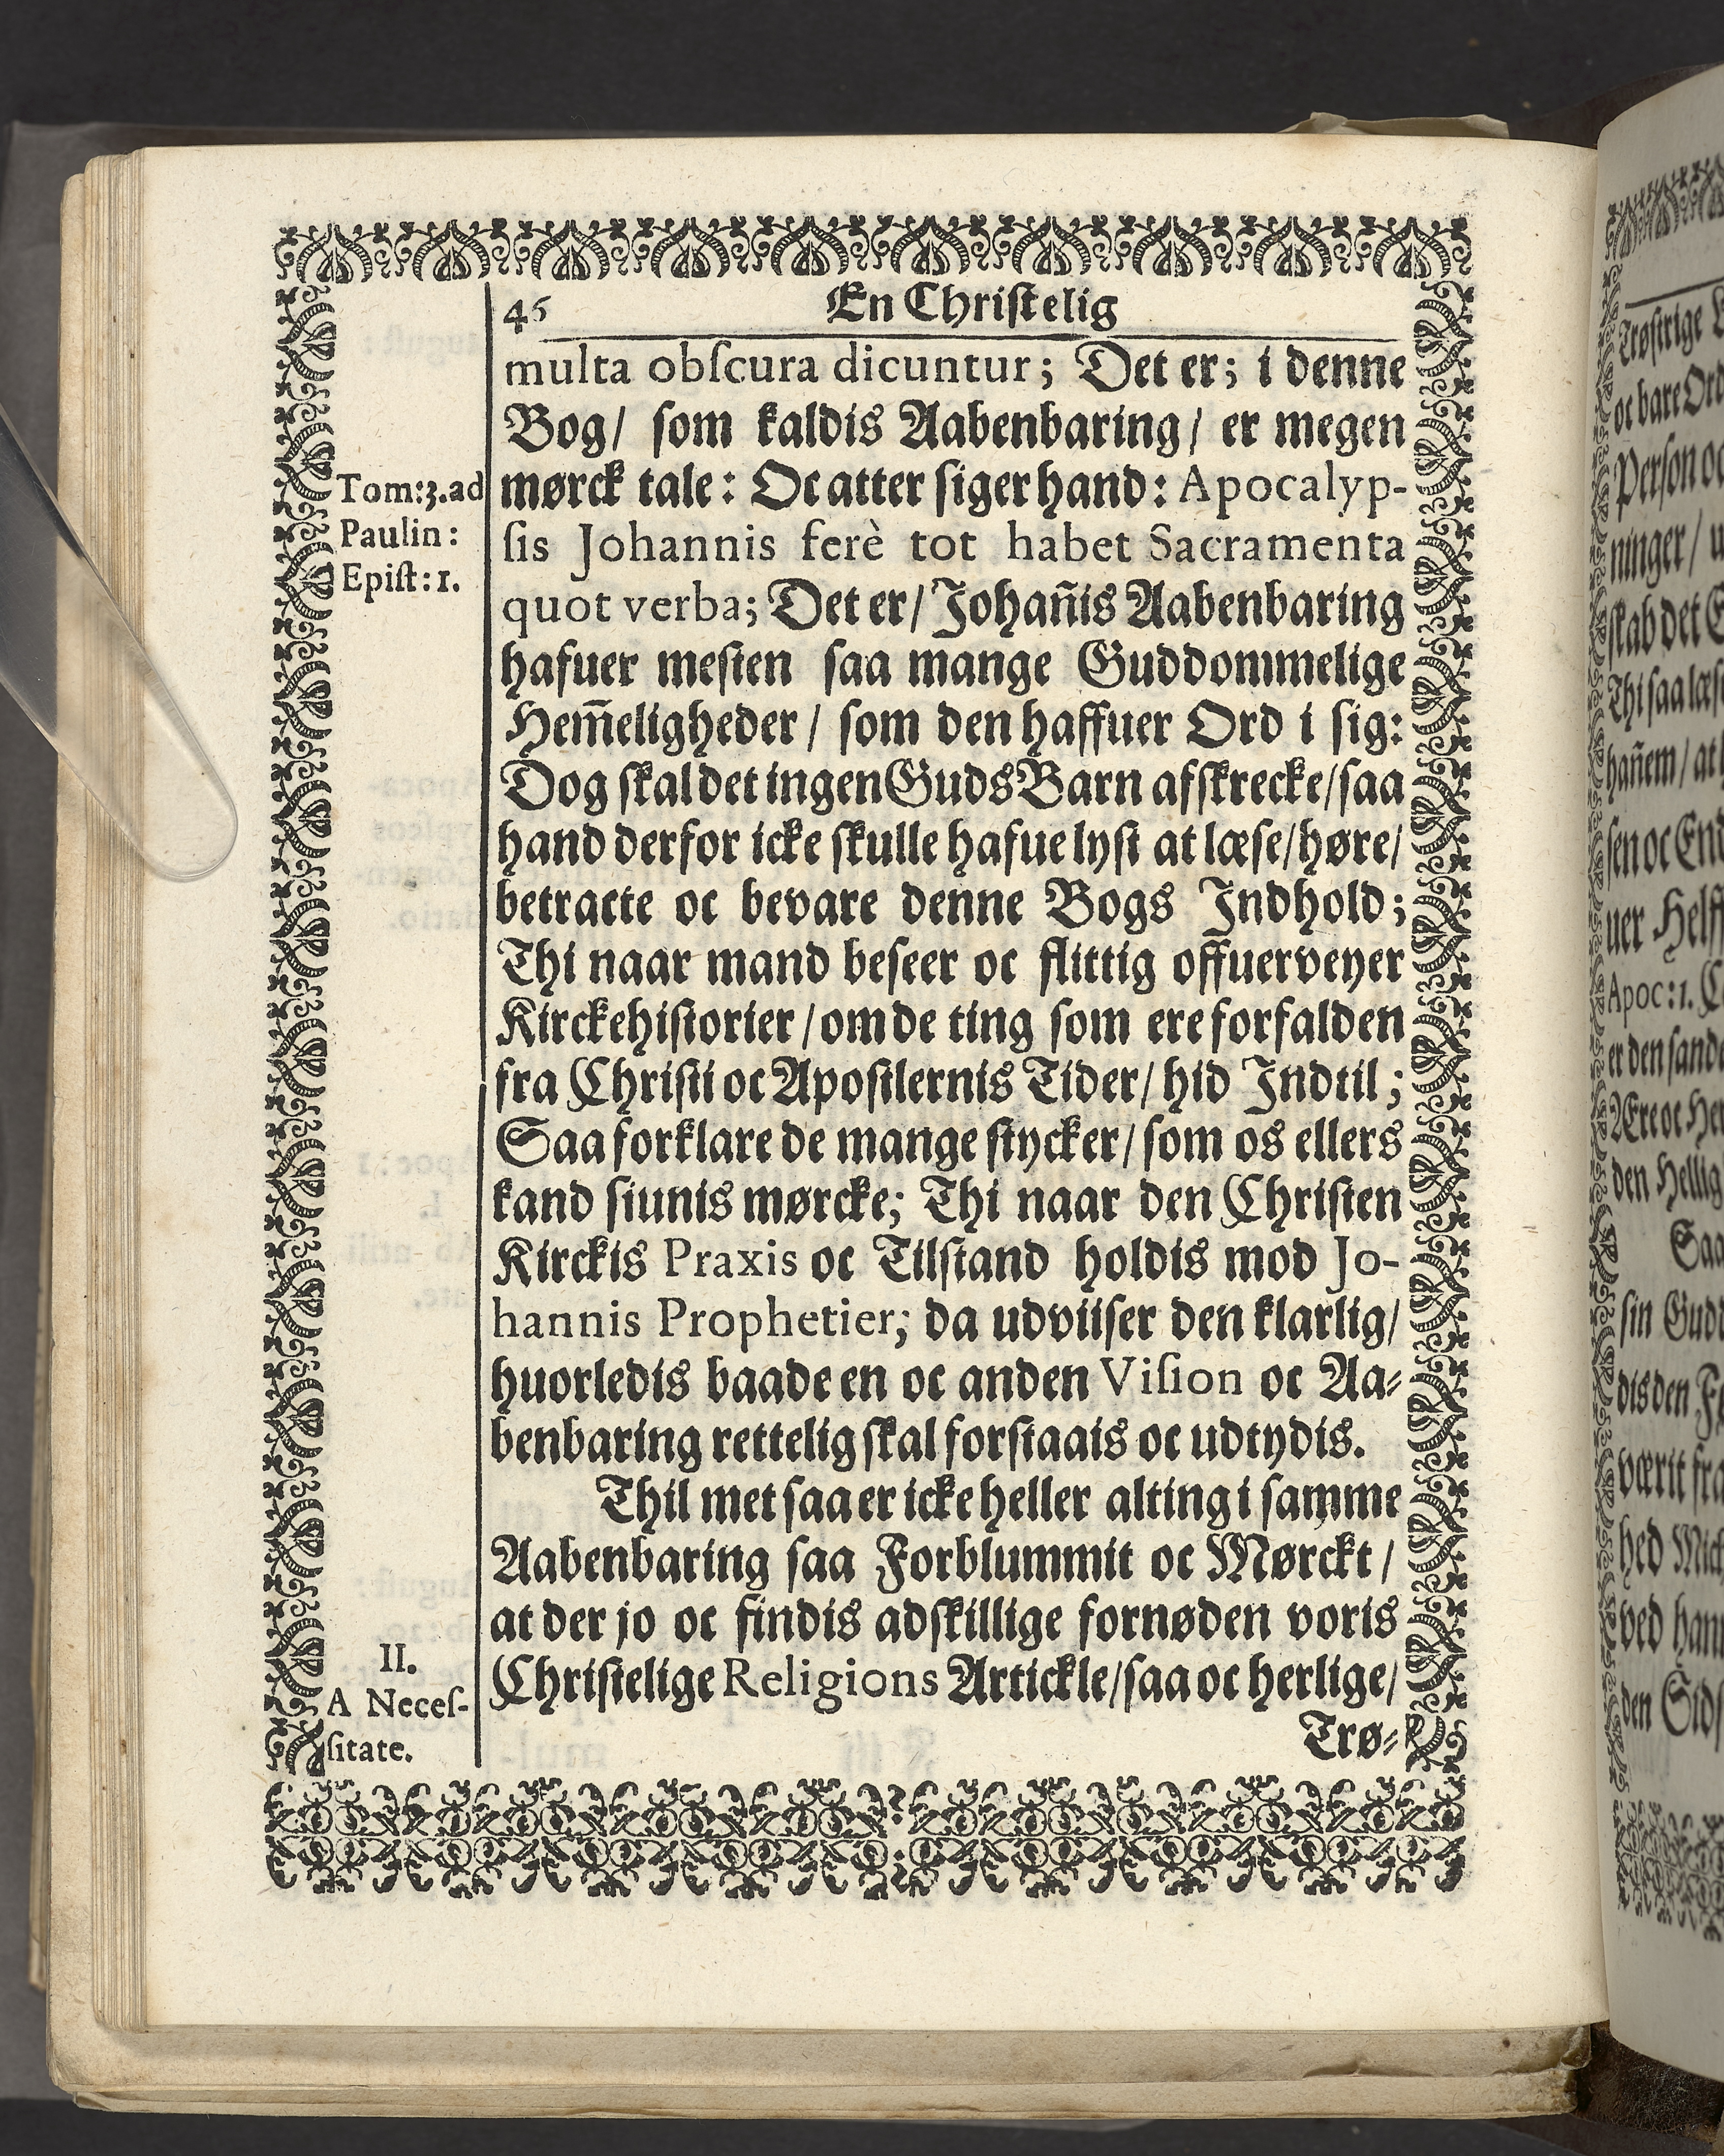 46 En Chriſtelig
multa obſcura dicuntur; Det er; i denne
Bog/ ſom kaldis Aabenbaring/ er megen
mørck tale: Oc atter ſiger hand: Apocalyp-
ſis Johannis ferè tot habet Sacramenta
quot verba; Det er/ Johan̄is Aabenbaring
hafuer meſten ſaa mange Guddommelige
Hem̄eligheder/ ſom den haffuer Ord i ſig:
Dog ſkal det ingen Guds Barn afſkrecke/ ſaa
hand derfor icke ſkulle hafue lyſt at læſe/ høre/
betracte oc bevare denne Bogs Indhold;
Thi naar mand beſeer oc flittig offuerveyer
Kirckehiſtorier/ om de ting ſom ere forfalden
fra Chriſti oc Apoſtlernis Tider/ hid Indtil;
Saa forklare de mange ſtycker/ ſom os ellers
kand ſiunis mørcke; Thi naar den Chriſten
Kirckis Praxis oc Tilſtand holdis mod Jo-
hannis Prophetier; da udviiſer den klarlig/
huorledis baade en oc anden Viſion oc Aa-
benbaring rettelig ſkal forſtaais oc udtydis.
Thil met ſaa er icke heller alting i ſamme
Aabenbaring ſaa Forblummit oc Mørckt/
at der jo oc findis adſkillige fornøden voris
Chriſtelige Religions Artickle/ ſaa oc herlige/
Trø-
Tom:3. ad
Paulin:
Epiſt: 1.
II.
A Neceſ-
ſitate.